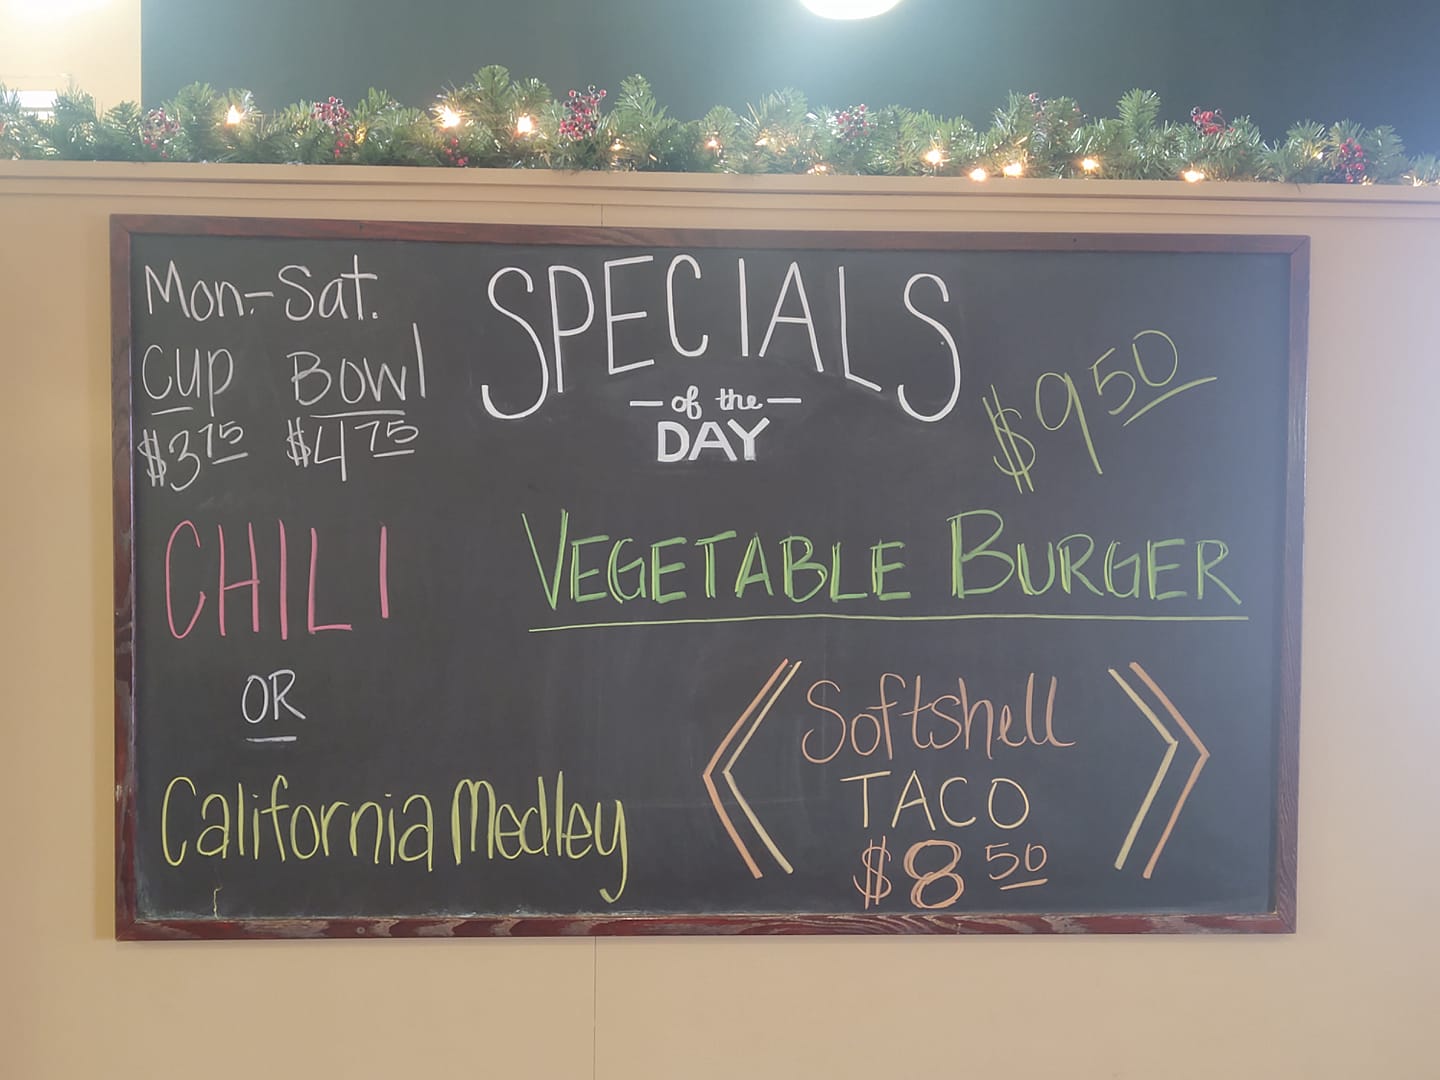 Mon.-Sat.
Cup Bowl
$3.75 $4.75
CHILI
OR
California Medley
SPECIALS
- of the -
DAY
$9.50
VEGETABLE BURGER
Softshell
TACO
$8.50